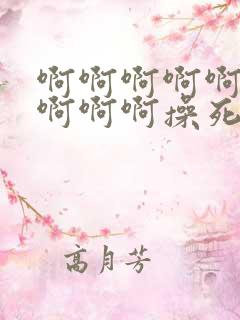 啊啊啊啊啊
啊啊啊操死
高月芳